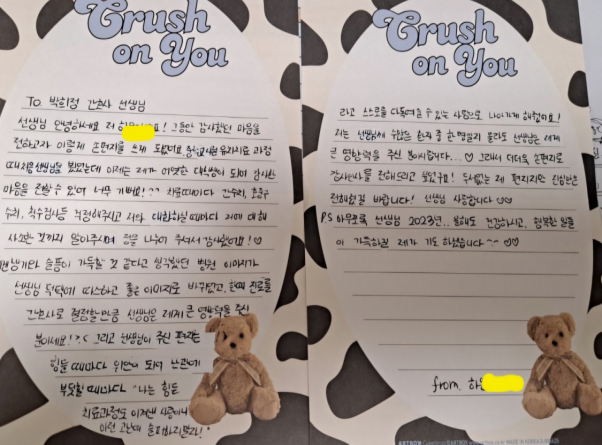 Crush
on You
To. 박희정 간호사 선생님
선생님 안녕하세요 저 하! 그동안 감사했던 마음을
전하고자 이렇게 손편지를 쓰게 되었어요
때 처음 선생님을 뵈었는데 이제는 제가 어엿한 대학생이 되어 감사한
마음을 전할 수 있어 너무 기뻐요!
수치, 척수검사를 걱정해주시고 저와 대화하실 때마다 저에 대해
사소한 것까지 알아주시며 정을 나누어 주셔서 감사했어요! ♡
슬픔이 가득할 것 같다고 생각했던 병원 이미지가
선생님 덕택에 따스하고 좋은 이미지로 바뀌었고, 진로를
간호사로 결정할만큼 선생님은 제게 큰 영향력을 주신
분이세요! 그리고 선생님이 주신 편지는
힘들 때마다 위안이 되어 난관에
부딪힐 때마다 "나는 힘든
치료과정도 이겨낸 사람이니
이런 고난에 슬퍼하지말자!"
Crush
on You
라고 스스로를 다독여줄 수 있는 사람으로 나아가게 해줬어요!
저는 선생님께 수많은 환자 중 한 명일지 몰라도 선생님은 제게
큰 영향력을 주신 분이십니다...♡ 그래서 더더욱 손편지로
감사인사를 전해드리고 싶었어요! 두서없는 제 편지지만 진심만은
전해졌길 바랍니다! 선생님 사랑합니다 ♡♡
P.S 아무쪼록 선생님 2023년.. 올해도 건강하시고, 행복한 일들
이 가득하길 제가 기도하겠습니다~~ ♡♡
from. 하